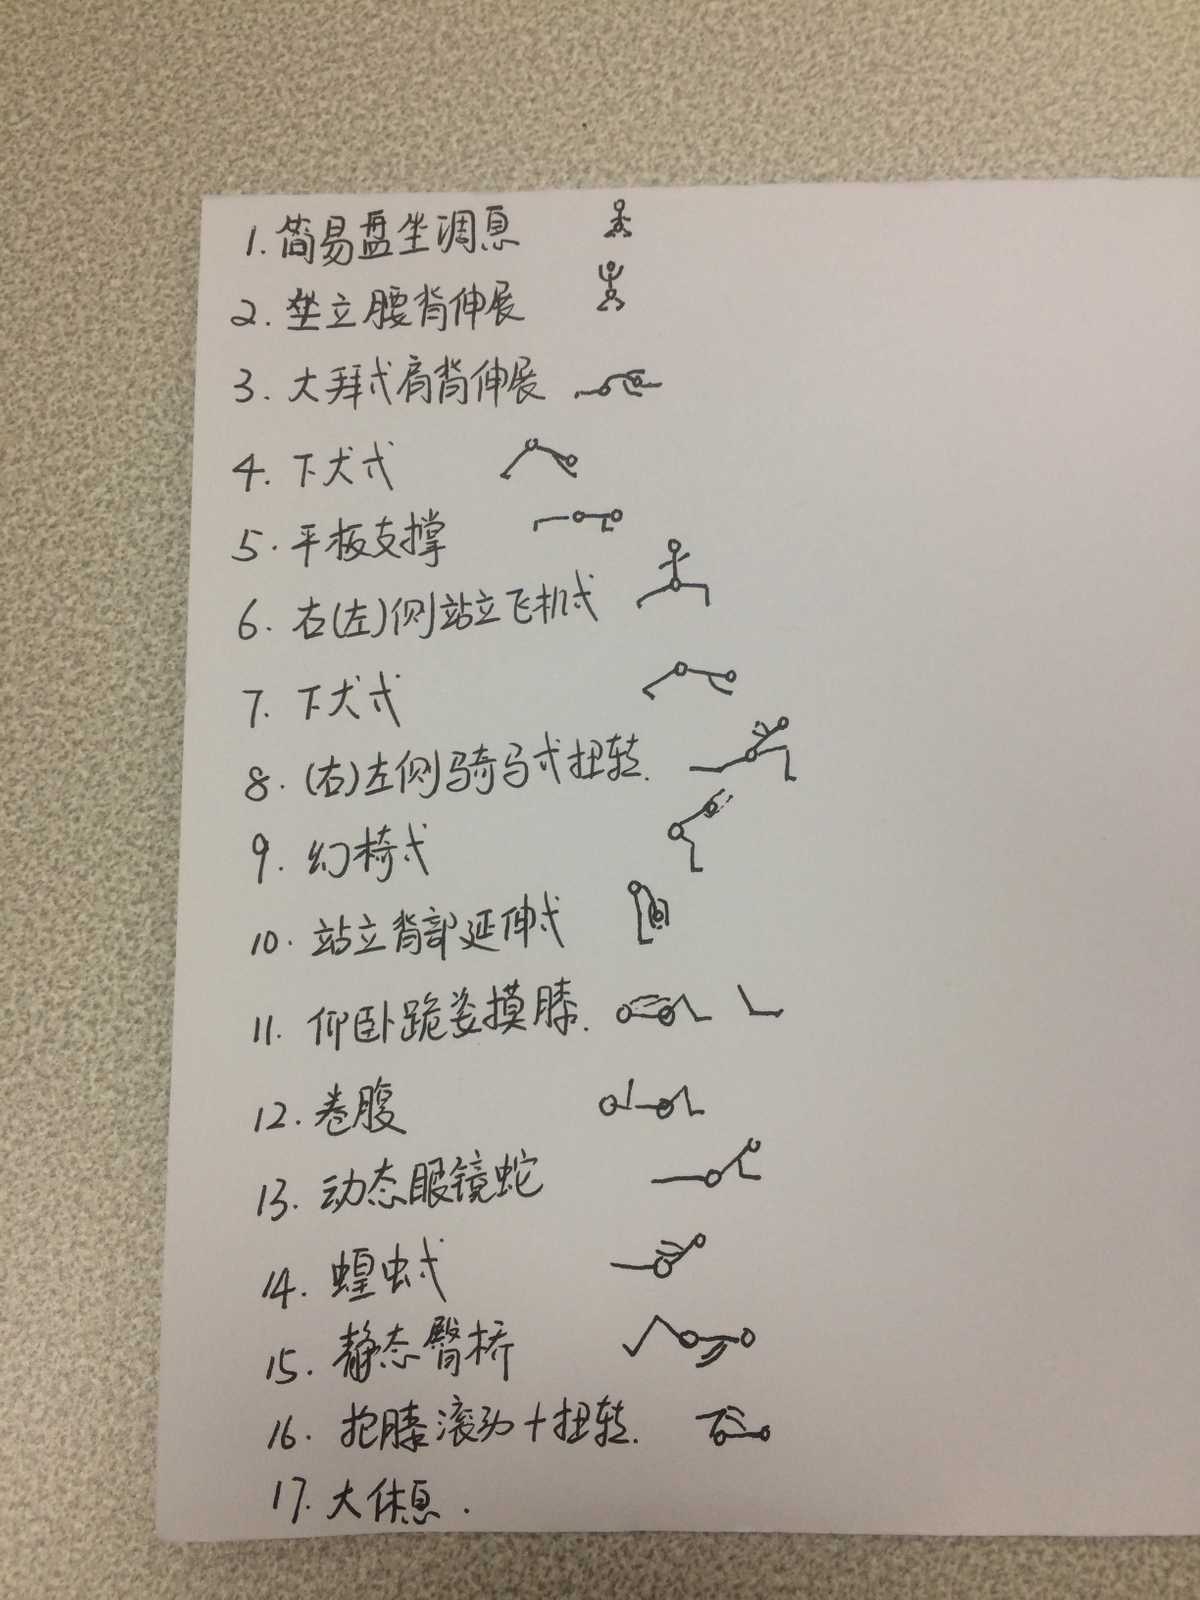 1. 简易盘坐调息
2. 坐立腰背伸展
3. 大拜式肩背伸展
4. 下犬式
5. 平板支撑
6. 右(左)侧站立飞机式
7. 下犬式
8. (右)左侧骑马式扭转.
9. 幻椅式
10. 站立背部延伸式
11. 仰卧跪姿摸膝.
12. 卷腹
13. 动态眼镜蛇
14. 蝗虫式
15. 静态臀桥
16. 抱膝滚动+扭转.
17. 大休息.